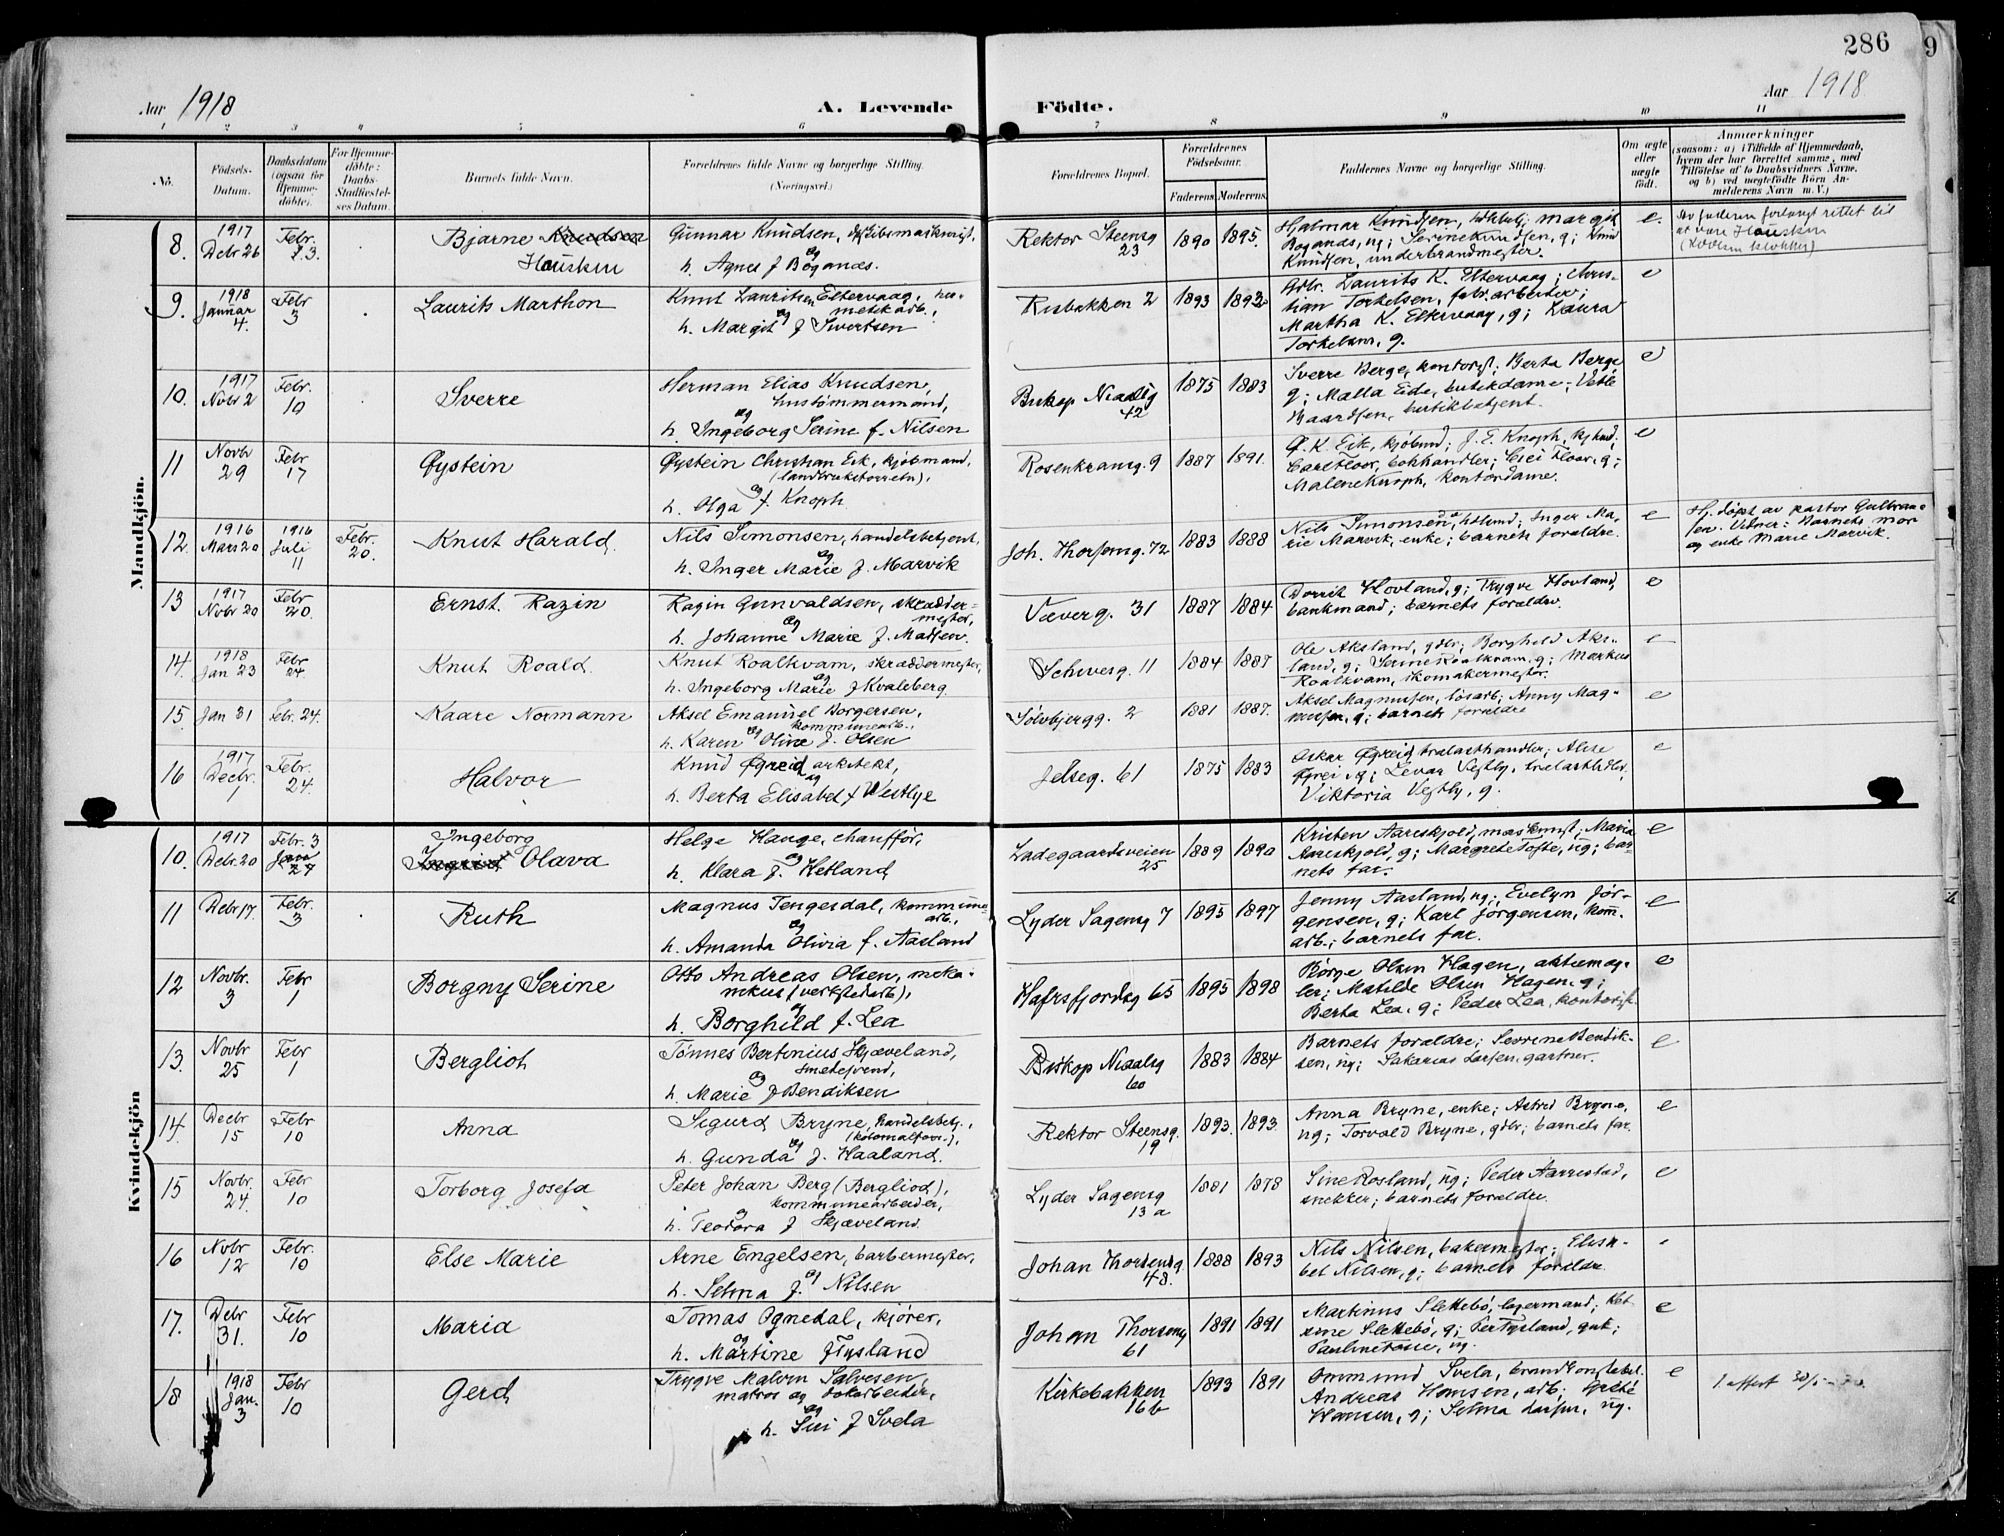 286
9
Aar 1918
A. Levende
Födte.
Aar 1918
1 2 3 4 5 6 7 8 9 10 11
No.
Födsels-
Datum.
Daabsdatum
(ogsaa for
Hjemme-
döbte).
For Hjemme-
döbte:
Daabs-
Stadfæstel-
ses Datum.
Barnets fulde Navn.
Forældrenes fulde Navne og borgerlige Stilling.
(Næringsvei.)
Forældrenes Bopæl.
Forældrenes
Födselsaar.
Faderens. Moderens.
Faddernes Navne og borgerlige Stilling.
Om ægte
eller
uægte
födt.
Anmærkninger
(saasom: a) i Tilfælde af Hjemmedaab,
hvem der har forrettet samme, med
Tilföielse af to Daabsvidners Navne,
og b) ved uægtefödte Börn An-
melderens Navn m. V.)
Mandkjön.
8. 1917 Decbr 26 Febr. 3
Bjarne Knudsen
Hausken
Gunnar Knudsen,
h. Agnes f Bøganæs.
Rektor Steensg
23
1890 1895.
Hjalmar Knudsen, Margit
Bøganæs, ug; Serine Knudsen, g; Knud
Knudsen, underbrandmester.
e.
Av faderen forlangt rettet til
at være Hausken
9. 1918 Januar 4. Febr 3
Laurits Marthon
Knut Lauritsen Eltervaag, her-
metikarb.,
og
h. Margit f Sivertsen
Risbakken 2
1893 1892
Gdbr. Laurits K. Eltervaag; Chris-
tian Torkelsen, fabr.arbeider;
Martha K. Eltervaag, g; Laura
Torkelsen, g.
e
10. 1917 Novbr 2 Febr. 10
Sverre
Herman Elias Knudsen,
hustømmermand,
og
h. Ingeborg Serine f. Nilsen
Biskop Niaalsg
42
1875 1883
Sverre Berge, kontorist; Berta Berge
g; Malla Eide, butikdame; Vetle
Baardsen, butikbetjent.
e
11 Novbr 29 Febr 17
Øystein
Øystein Christian Eik, kjøbmand,
og
h. Olga f. Knoph
Rosenkransg. 9
1887 1891.
Ø. K. Eik, kjøbmd; J. E. Knoph, kjøbmd;
Carl Floor, bokhandler; Floor, g;
Malene Knoph, kontordame.
e
12. 1916 Mars 20 1916 Juli 11 Febr. 20.
Knut Harald.
Nils Simonsen, handelsbetjent,
og
h. Inger Marie f. Marvik
Joh. Thorsensg. 72
1883 1888
Nils Simonsen, Inger Ma-
rie Marvik, enke; barnets forældre.
e
Hj. døpt av pastor Gulbran-
sen. Vidner: Barnets mor
og enke Marie Marvik.
13 1917 Novbr 20 Febr 20.
Ernst Razin
Ragin Gunvaldsen, skrædder-
mester,
og
h. Johanne Marie f. Madsen.
Væverg. 31
1887 1884
Dorrit Hovland, g; Trygve Hovland,
bankmand; barnets forældre.
e
14. 1918 Jan 23 Febr 24.
Knut Roald.
Knut Roalkvam, skræddermester,
og
h. Ingeborg Marie f Kvaleberg
Schiverg. 11
1884 1887
Ole Aksland, gdbr; Borghild Aks-
land, g; Serine Roalkvam, g; Markus
Roalkvam, skomakermester.
e
15. Jan 31 Febr. 24.
Kaare Normann
Aksel Emanuel Borgersen,
kommunearb.,
og
h. Karen Oline f. Olsen
Sølvbjergg. 2
1881 1887.
Aksel Magnussen, løsarb; Anny Mag-
nussen, g; barnets forældre
e
16 1917 Decbr. 1 Febr. 24.
Halvor
Knud Øgreid arkitekt,
og
h. Berta Elisabet f Westlye
Jelseg. 61
1875 1883
Oskar Øgreid trælasthandler; Alise
Øgrei, ug; Levar Vestby, trælasthdlr;
Viktoria Vestby, g.
e
Kvindekjön
10. 1917 Decbr. 20 Febr. 3
Ingeborg
Ingrid Olava
Helge Hauge, chauffør,
og
h. Klara f. Hetland
Ladegaardsveien
25
1889 1890
Kristen Aareskjold, maskinist; Maria
Aareskjold, g; Margrete Tofte, ug; bar-
nets far.
e
11 Decbr 17. Febr. 3
Ruth
Magnus Tengesdal, kommune-
arb.,
og
h. Amanda Olivia f. Aasland
Lyder Sagensg 7
1895 1897
Jenny Aasland, ug; Evelyn Jør-
gensen, g; Karl Jørgensen, kom.
arb.; barnets far.
e
12 Novbr. 3 Febr 1
Borgny Serine
Otto Andreas Olsen, meka-
nikus (verkstedarb),
og
h. Borghild f. Lea
Hafrsfjordsg 65
1895 1898
Børge Olsen Hagen, aktiemeg-
ler; Matilde Olsen Hagen, g;
Berta Lea, g; Peder Lea, kontorist.
e
13. Novbr 25 Febr 1
Bergliot
Tønnes Bertinius Skjæveland,
smedsvend,
og
h. Marie f Bendiksen
Biskop Niaalsg
60
1883 1884
Barnets forældre; Severine Bendik-
sen, ug; Sakarias Larsen, gartner.
e
14. Decbr 15 Febr 10
Anna
Sigurd Bryne, handelsbetj.,
(kolonialforr.),
og
h. Gunda f. Haaland.
Rektor Steensg.
19
1893. 1893.
Anna Bryne, enke; Astrid Bryne,
ug; Torvald Bryne, gdbr; barnets far.
e
15 Novbr. 24. Febr 10
Torborg Josefa
Peter Johan Berg (Bergliod),
kommunearbeider,
og
h. Teodora f Skjæveland.
Lyder Sagensg
13 a
1881 1878
Sine Rosland, ug; Peder Aarrestad,
snekker; barnets forældre.
e
16 Novbr 12 Febr. 10
Else Marie
Arne Engelsen, barbermester,
og
h. Selma f. Nilsen
Johan Thorsensg
48.
1888 1893
Nils Nilsen, bakermester; Elisa-
bet Nilsen, g; barnets forældre.
e
17. Decbr 31. Febr 10
Maria
Tomas Ognedal, kjører,
og
h. Martine f Tysland
Johan Thorsensg
61
1891 1891
Martinus Slettebø, lagermand;
Slettebø, g; Per Tysland, gut;
Pauline, ug.
e
18 1918 Jan. 3 Febr 10
Gerd
Trygve Malvin Salvesen,
matros og dokarbeider,
og
h. Siri f Svela
Kirkebakken
16 b
1893 1891
Ommund Svela, brandkonstabel.
Andreas Hansen, arb; Grete
Hansen, g; Selma Larsen, ug.
e
1. attest 30/5